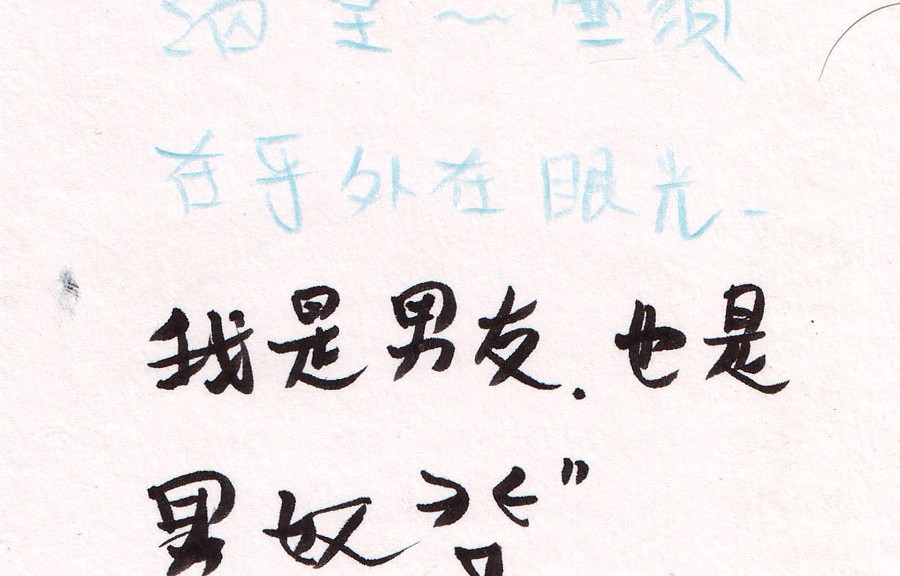 在乎外在眼光-
我是男友.也是
男奴